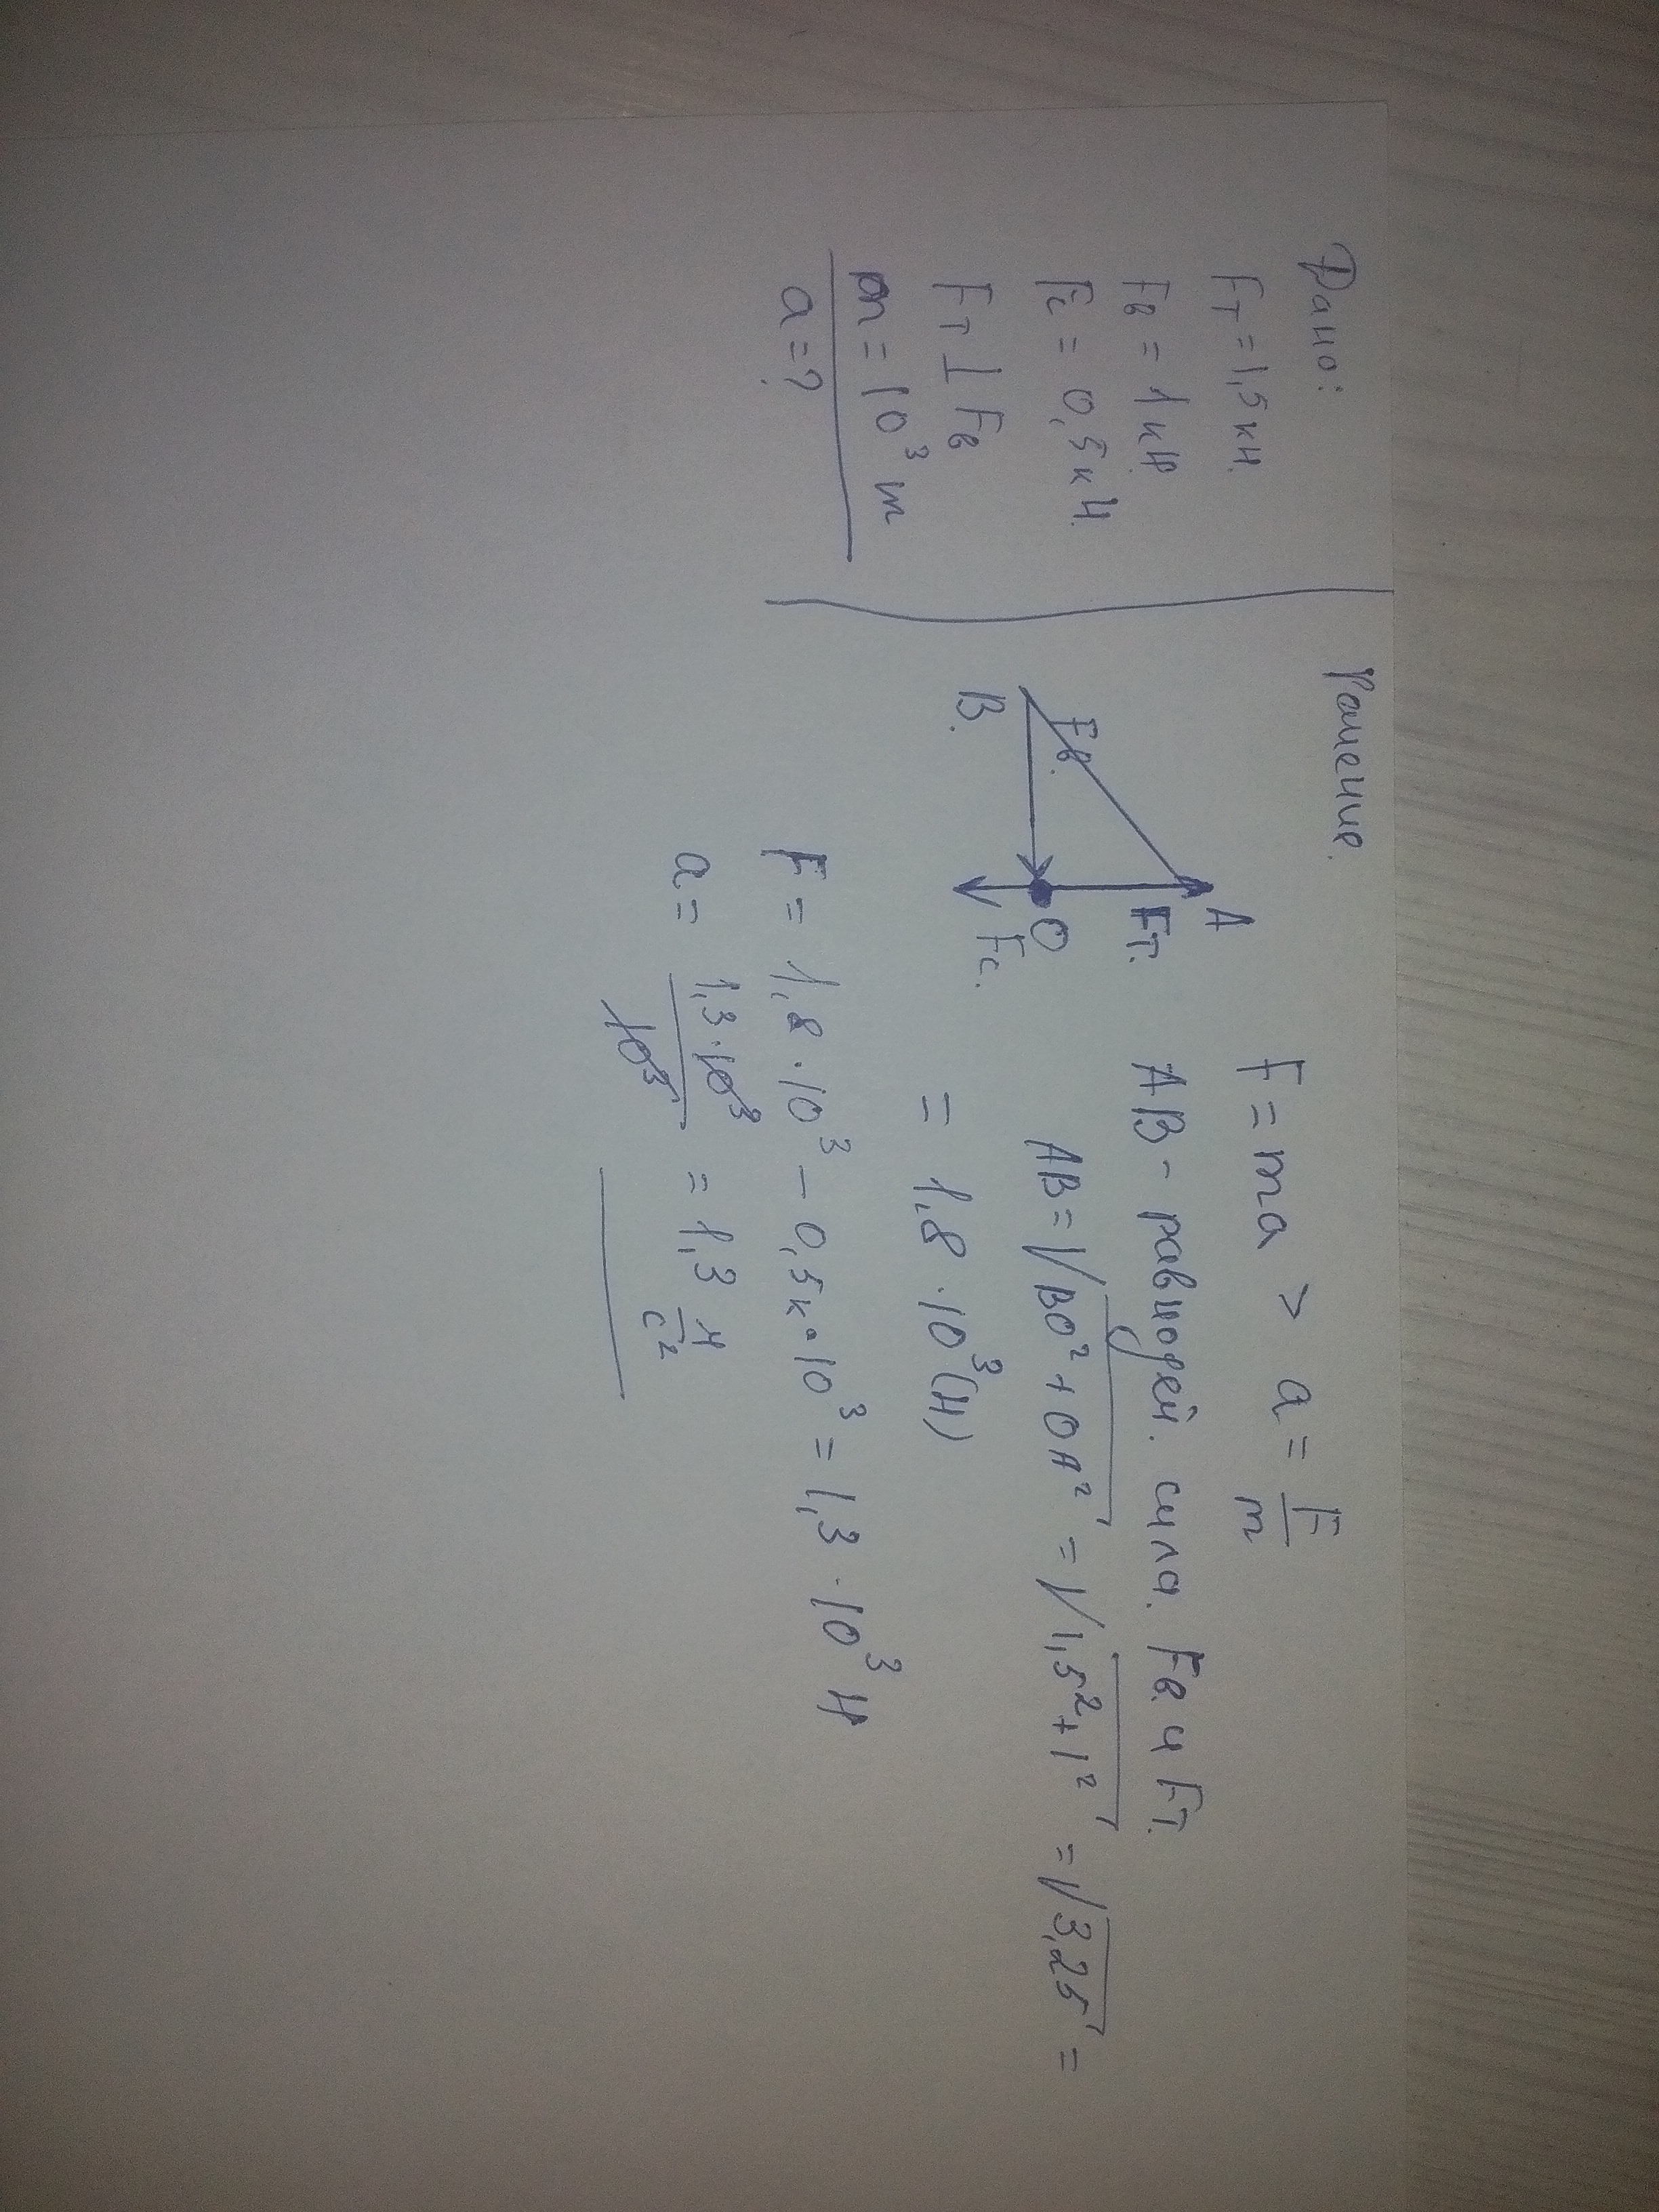 Дано:
Fт = 1,5 кН.
Fв = 1 кН
Fс = 0,5 кН.
Fт ⊥ Fв
m = 10³ т
a = ?
Решение.
A
Fт.
Fв.
O
B.
Fс.
F = ma > a = F/m
AB - равнодей. сила. Fв и Fт.
AB = √BO² + OA² = √1,5² + 1² = √3,25 =
= 1,8 · 10³ (Н)
F = 1,8 · 10³ - 0,5к · 10³ = 1,3 · 10³ Н
a = 1,3 · 10³ / 10³ = 1,3 м/с²